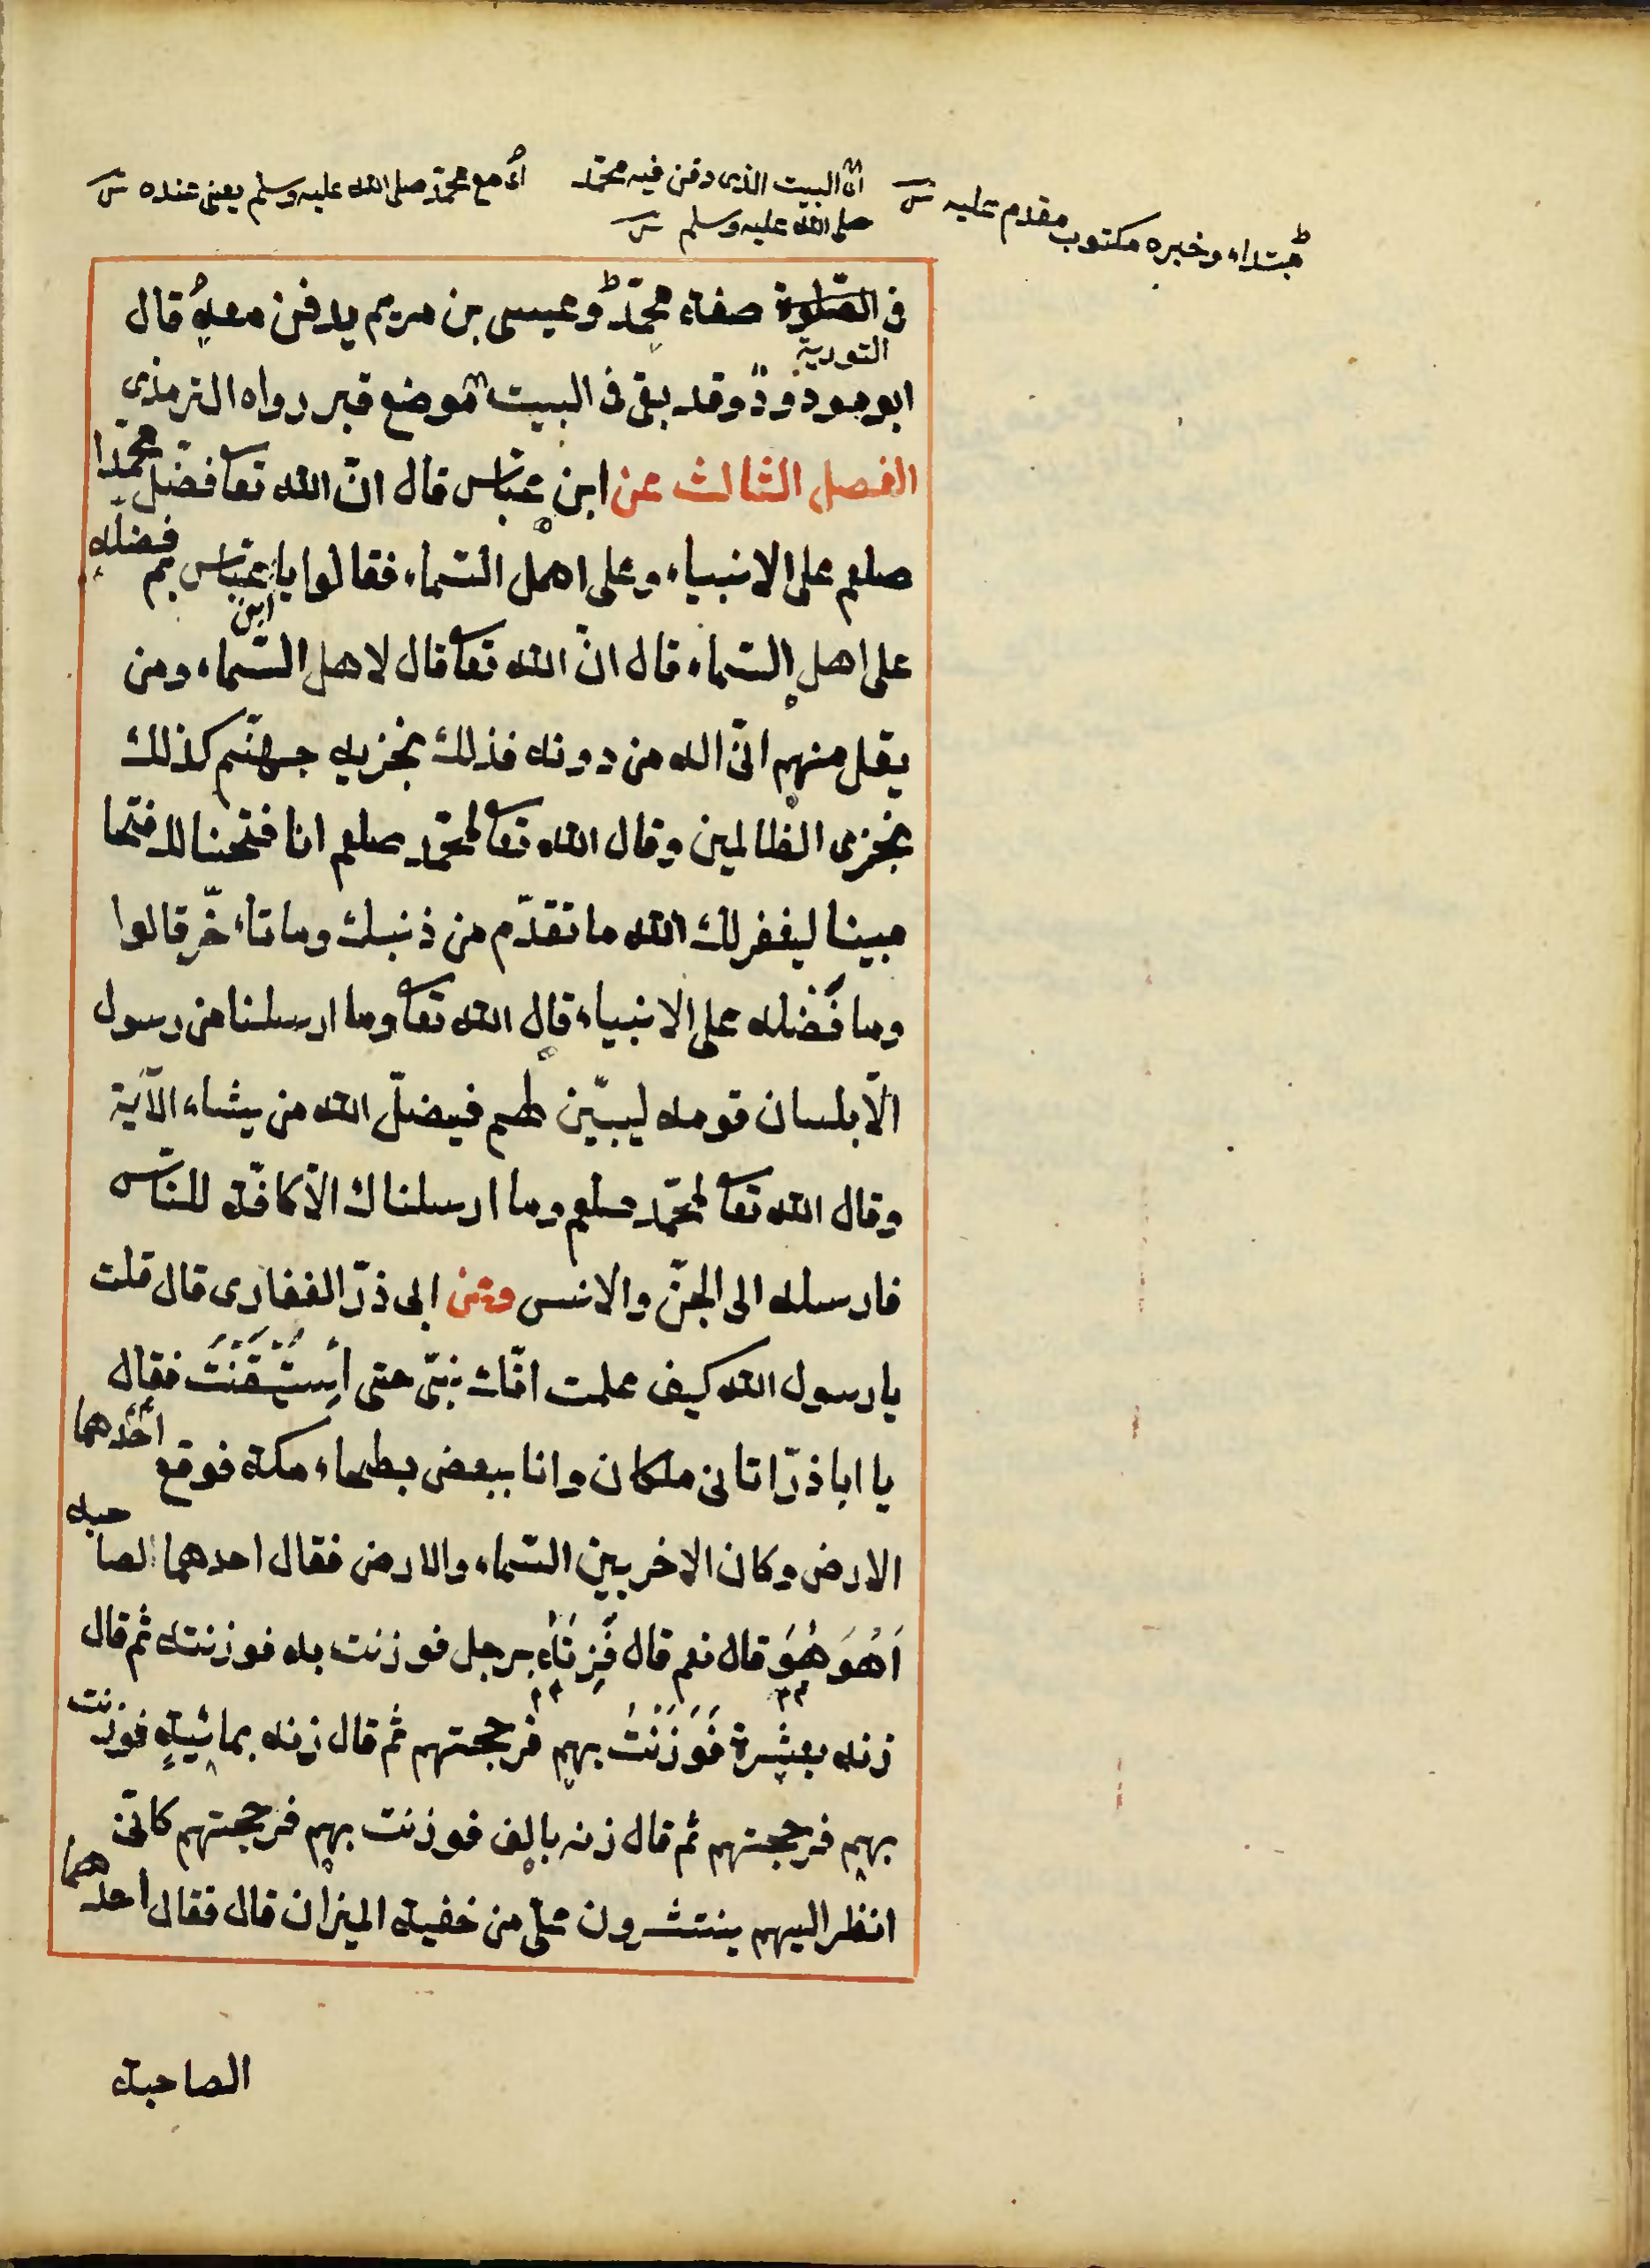 مبتداء وخبره مكتوب مقدم عليه
اى البيت الذى دفن فيه محمد
صلى الله عليه وسلم
اى مع محمد صلى الله عليه وسلم يعنى عنده
فى الصلوة صفة محمّد وعيسى بن مريم يدفن معه قال
التورية
ابو مودود وقد بقى فى البيت موضع قبر رواه الترمذى
الفصل الثالث عن ابن عبّاس قال انّ الله تعا فضّل محمّدا
صلعم على الانبياء وعلى اهل السّماء فقالوا يا ابن عبّاس بم فضله
على اهل السّماء قال انّ الله تعا قال لاهل السّماء ومن
يقل منهم انّى اله من دونه فذلك نجزيه جهنّم كذلك
نجزى الظالمين وقال الله تعا لمحمّد صلعم انا فتحنا لك فتحا
مبينا ليغفر لك الله ما تقدّم من ذنبك وما تاءخّر قالوا
وما فَضله على الانبياء قال الله تعا وما ارسلنا من رسول
الّا بلسان قومه ليبيّن لهم فيضلّ الله من يشاء الآية
وقال الله تعا لمحمّد صلعم وما ارسلناك الّا كافّة للنّاس
فارسله الى الجنّ والانس وعن ابى ذرّ الغفارى قال قلت
يا رسول الله كيف علمت انّك نبىّ حتى اسْتَيْقَنْتَ فقال
يا ابا ذرّ اتانى ملكان وانا ببعض بطحاء مكة فوقع احَدُهما
الارض وكان الاخر بين السّماء والارض فقال احدهما لصاحبه
اَهُوَ هُوَ قال نعم قال فَزِنْهُ برجل فوزنت به فوزنته ثم قال
زنه بعشرة فَوَزَنْتُ بهم فرجحتهم ثم قال زنه بمائة فوزنت
بهم فرجحتهم ثم قال زنه بالف فوزنت بهم فرجحتهم كانّى
انظر اليهم ينتثرون علىّ من خفية الميزان قال فقال احدهما
الصاحبه